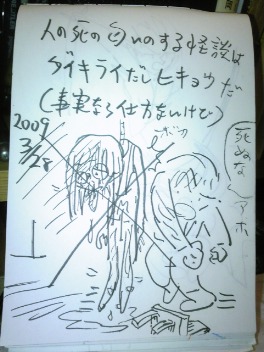 人の死の匂いのする怪談は
ダイキライだしヒキョウだ
(事実なら仕方ないけど)
2009
3/28
ボク
死ぬな
アホ